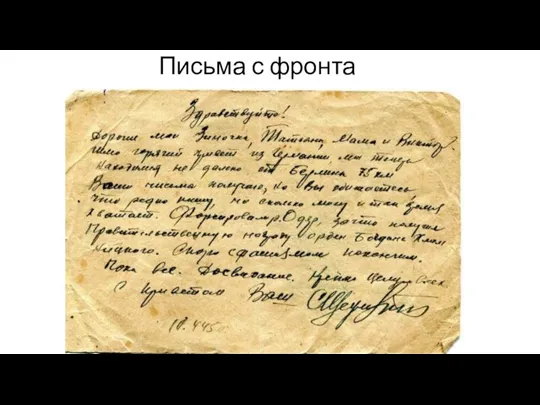 Письма с фронта
Здравствуйте!
Дорогие мои Зиночка, Татьяна, Мама и Виктор.
Шлю горячий привет из Германии мы теперь
находимся не далеко от Берлина 75 км
Ваши письма получаю, но Вы обижаетесь
что редко пишу, но сколько могу и так
хватает. Форсировал р. Одер, за что получил
Правительственную награду орден Богдана Хмель
ницкого. Скоро с фашизмом покончим.
Пока все. Досвидание. Крепко целую всех
С приветом Ваш
10.4.45